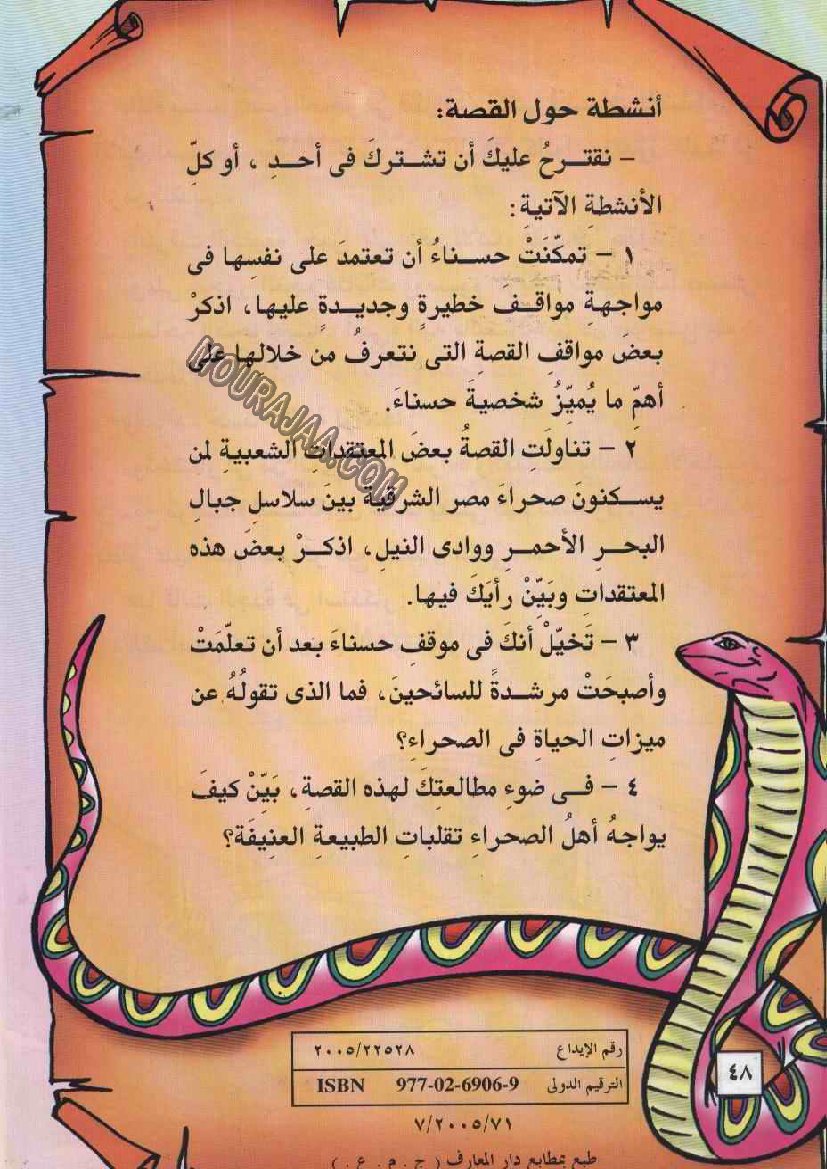 أنشطة حول القصة:
- نقترحُ عليكَ أن تشتركَ فى أحدِ ، أو كلِّ
الأنشطةِ الآتيةِ:
١ - تمكّنَتْ حسناءُ أن تعتمدَ على نفسِها فى
مواجهةِ مواقفِ خطيرةٍ وجديدةٍ عليها، اذكرْ
بعضَ مواقفِ القصةِ التى نتعرفُ من خلالها على
أهمِّ ما يُميِّزُ شخصيةَ حسناءَ.
٢ - تناولَتِ القصةُ بعضَ المعتقداتِ الشعبيةِ لمن
يسكنونَ صحراءَ مصر الشرقيةَ بينَ سلاسلِ جبالِ
البحرِ الأحمرِ ووادى النيلِ، اذكرْ بعضَ هذه
المعتقداتِ وبَيِّنْ رأيَكَ فيها.
٣ - تَخيّلْ أنكَ فى موقفِ حسناءَ بعد أن تعلّمَتْ
وأصبحَتْ مرشدةً للسائحينَ، فما الذى تقولُهُ عن
ميزاتِ الحياةِ فى الصحراءِ؟
٤ - فى ضوءِ مطالعتِكَ لهذه القصةِ، بَيِّنْ كيفَ
يواجهُ أهلُ الصحراءِ تقلباتِ الطبيعةِ العنِيفَة؟
MOURAJAA.COM
رقم الإيداع ٢٠٠٥/٢٢٥٢٨
الترقيم الدولى ISBN 977-02-6906-9
٤٨
٧/٢٠٠٥/٧١
طبع بمطابع دار المعارف (ج . م . ع .)